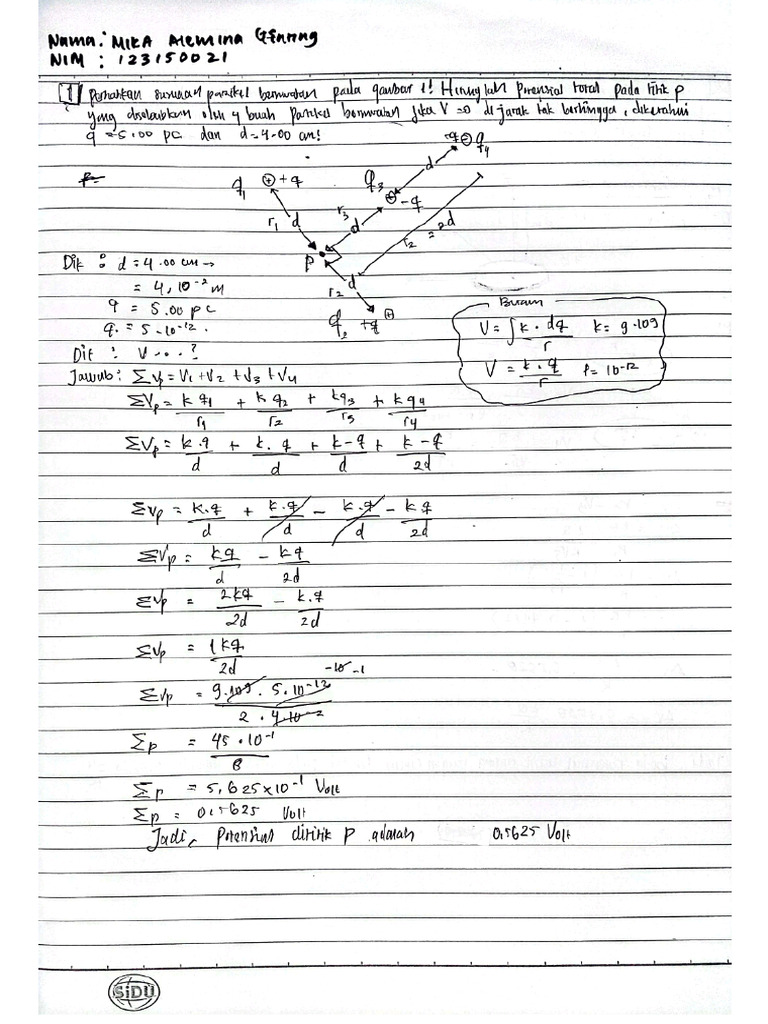 Nama: MIKA Memina Ginting
NIM : 123150021
1 Perhatikan susunan partikel bermuatan pada gambar 1! Hitunglah Potensial total pada titik P
yang disebabkan oleh 4 buah Partikel bermuatan jika V = 0 di jarak tak berhingga, diketahui
q = 5.00 pC dan d = 4.00 cm!
-q ⊖ q4
d
q1 ⊕ +q
q3
⊖ -q
r1 d
r3
d
r2 = 2d
P
d
r2
q2 +q ⊕
Dik : d = 4.00 cm →
= 4,10⁻² m
q = 5.00 pC
q. = 5.10⁻¹².
Dit : V...?
Buram
V = ∫ k . dq / r k = 9.109
V = k . q / r P = 10⁻¹²
Jawab : Σ Vp = V1 + V2 + V3 + V4
ΣVp = k q1 / r1 + k q2 / r2 + k q3 / r3 + k q4 / r4
ΣVp = k.q / d + k. q / d + k-q / d + k-q / 2d
ΣVp = k.q / d + k.q / d - k.q / d - k q / 2d
ΣVp = kq / d - kq / 2d
ΣVp = 2kq / 2d - k.q / 2d
ΣVp = 1kq / 2d
-10 -1
ΣVp = 9.109 . 5.10⁻¹² / 2 . 4.10⁻²
Σp = 45 . 10⁻¹ / 8
Σp = 5,625 x 10⁻¹ Volt
Σp = 0,5625 Volt
Jadi, Potensial dititik P adalah 0,5625 Volt
SiDU